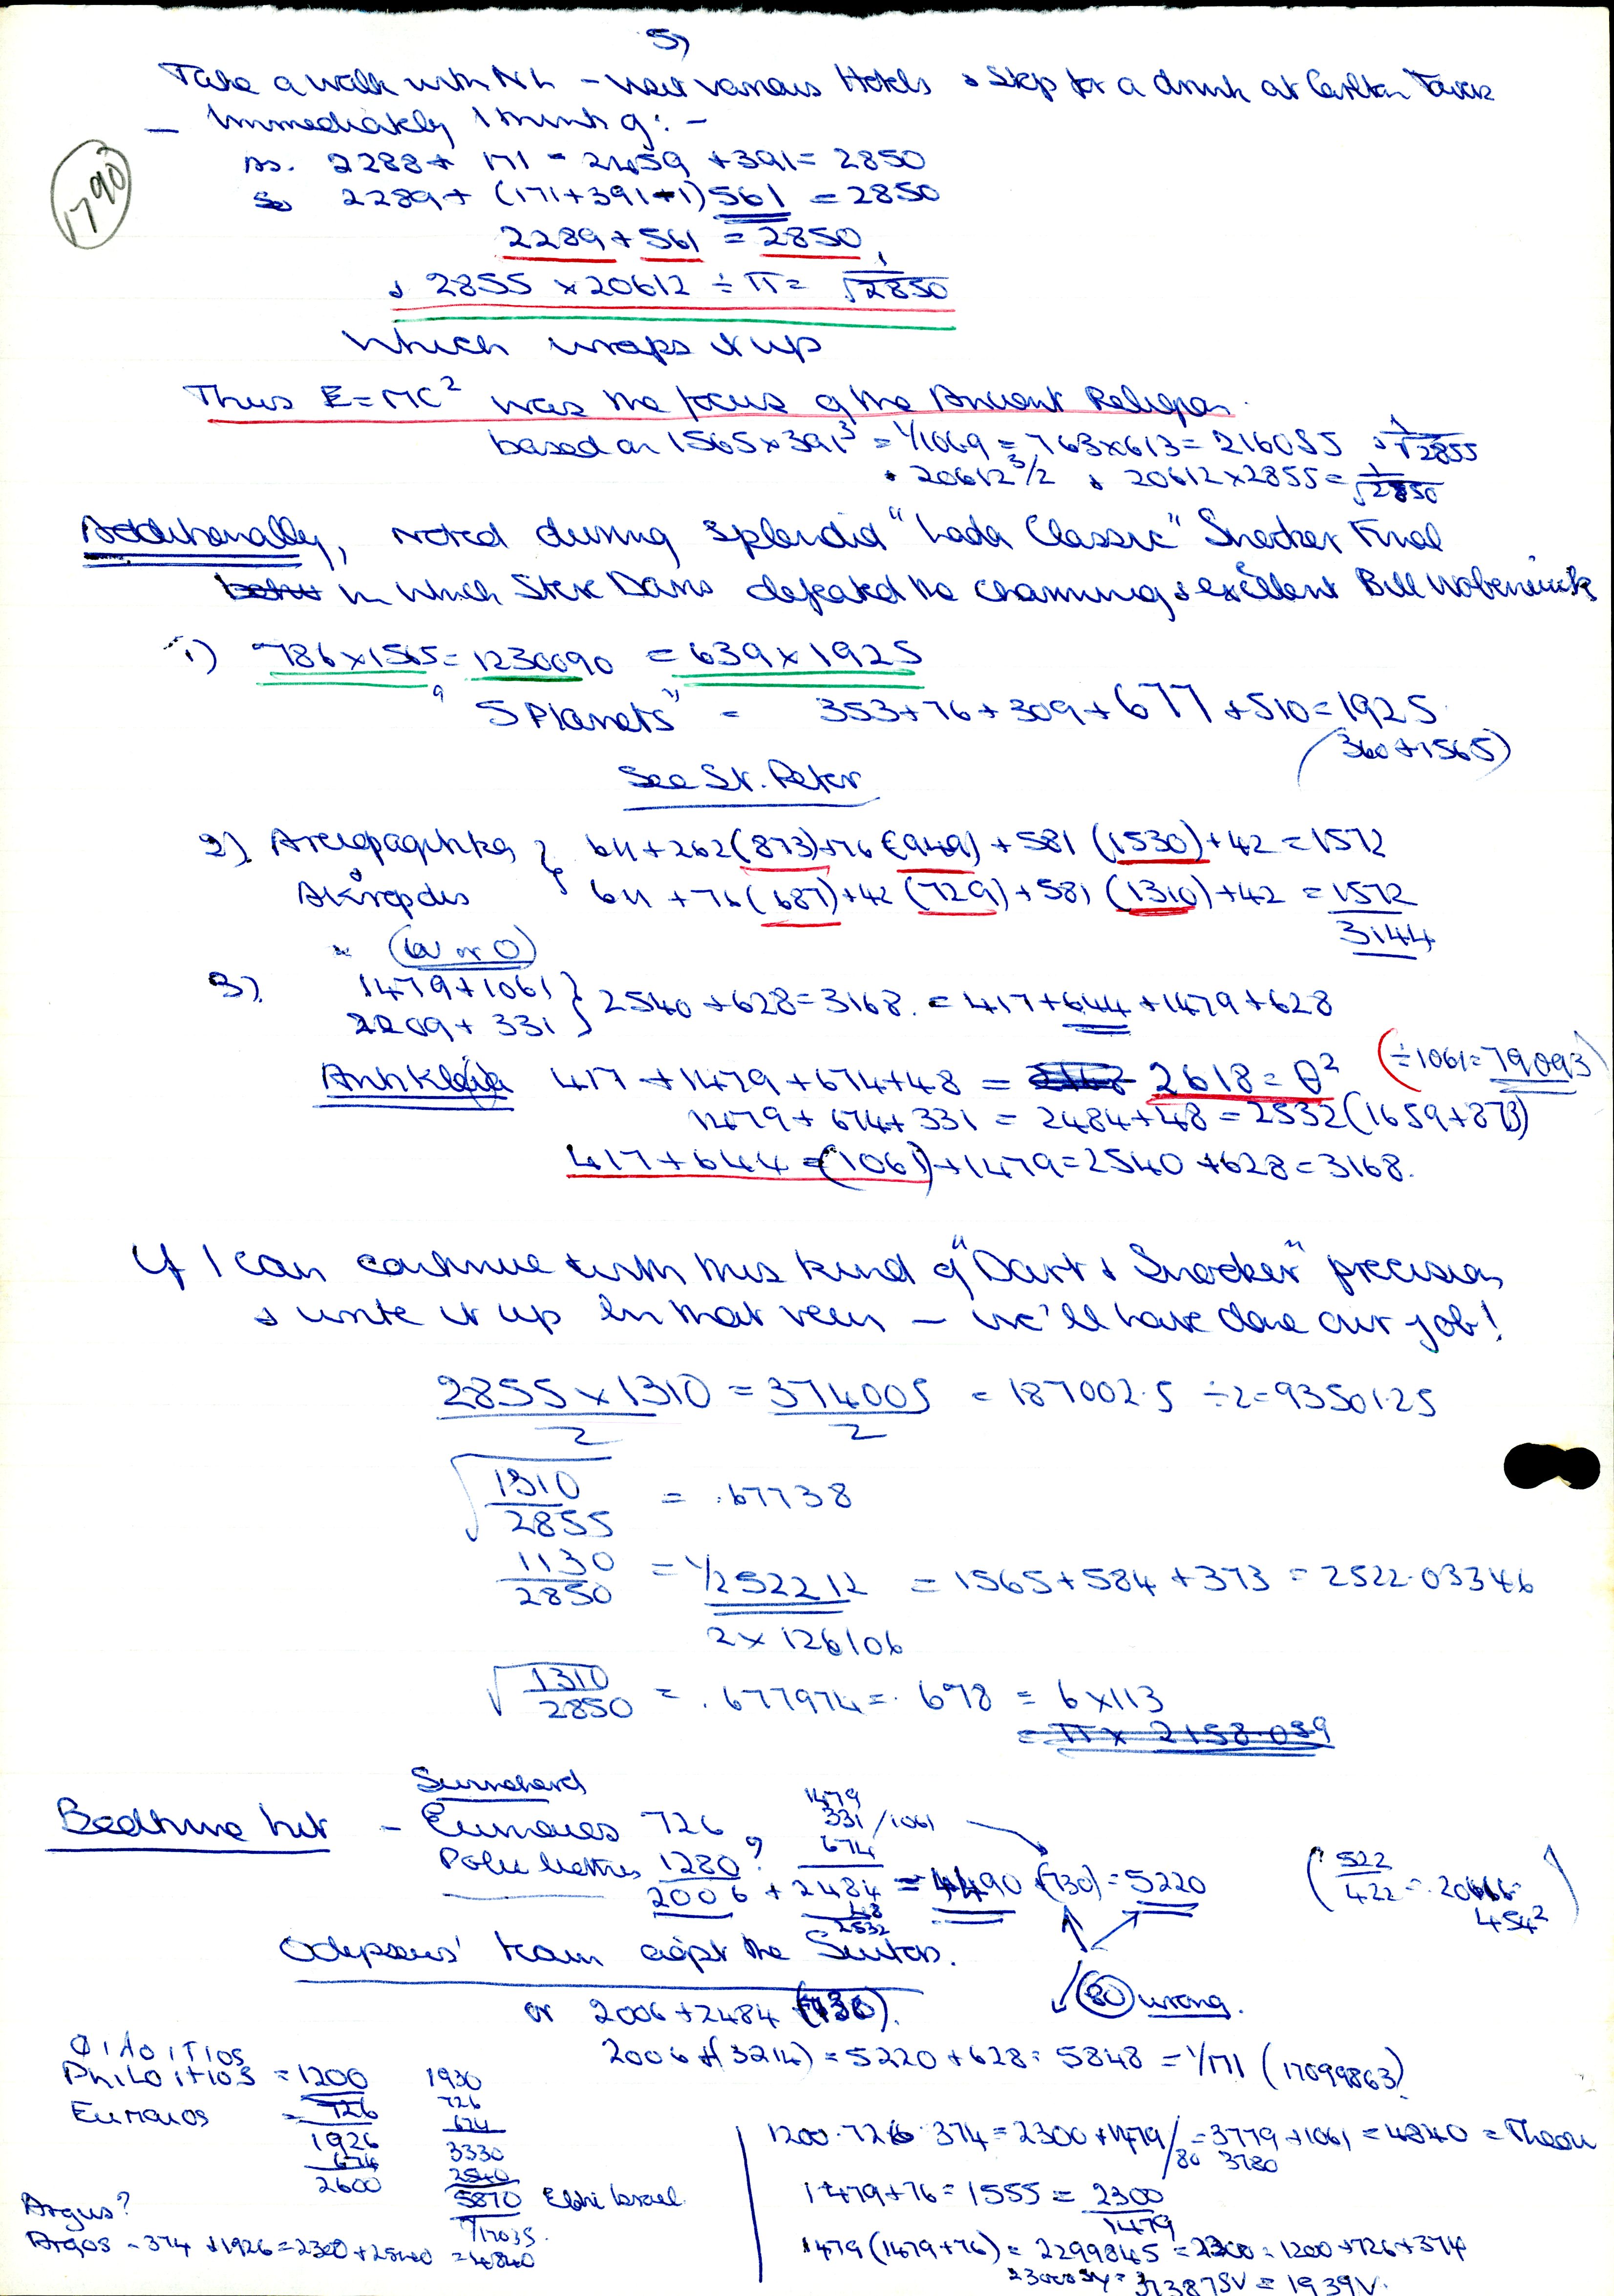 5)
Take a walk with NL - visit various Hotels & stop for a drink at Carlton Tower
- Immediately I think of: -
1790
As. 2288 + 171 = 2459 + 391 = 2850
So 2289 + (171+391-1) 561 = 2850
2289 + 561 = 2850
& 2855 × 20612 ÷ π = 1/√2850
Which wraps it up
Thus E=MC² was the focus of the Ancient Religion.
based on 1565 × 391³ = 1/1069 = 763×613 = 216055 & 1/√2855
& 20612 3/2 & 20612×2855 = 1/√2850
Additionally, noted during splendid "Lada Classic" Snooker Final
in which Steve Davis defeated the charming & excellent Bill Werbeniuk
1) 786×1565 = 1230090 = 639×1925
"5 Planets" = 353+76+309+677+510=1925
(360+1565)
See St. Peter
2) Areopagitika } 611+262(873)+76(949)+581(1530)+42=1572
Akropolis 611+76(687)+42(729)+581(1310)+42=1572
3144
(ω or O)
3) 1479+1061
2209+331 } 2540+628=3168. = 417+644+1479+628
Antikleia 417+1479+674+48 = 2618=θ² (÷1061=79093)
1479+674+331 = 2484+48=2532(1659+873)
417+644=(1061)+1479=2540+628=3168.
If I can continue with this kind of "Dart & Snooker" precision
& write it up in that vein - we'll have done our job!
2855×1310/2 = 374005/2 = 187002.5 ÷2=93501.25
√1310/2855 = .67738
1130/2850 = 1/252212 = 1565+584+373=2522.03346
2×126106
√1310/2850 = .677974 = .678 = 6×113
= π × 2158.039
Swineherd
Bedtime hit - Eumaues 726
1479
331/1061
674
Polu 1280? 2006 + 2484 = 4490 (730) = 5220
48
2532
(522/422 = .20666=
454²)
Odysseus' team agst the Suitors.
or 2006+2484 (730).
(80) wrong.
2006+(3214)=5220+628=5848=1/171 (17099863)
ΦιλοιΤιος
Philoitios = 1200
Eumaios = 726
1926
674
2600
1930
726
674
3330
2540
5870
1/17035.
Argus?
Argos - 374+1926=2300+2540=4840
1200.726.374=2300+1479/80=3779+1061=4840=Theon
3780
1479+76=1555=2300/1479
1479(1479+76)=2299845=2300=1200+726+374
= 1939V.